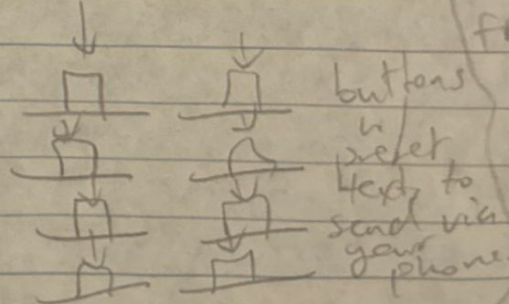 buttons
w/
preset
text to
send via
your
phone.